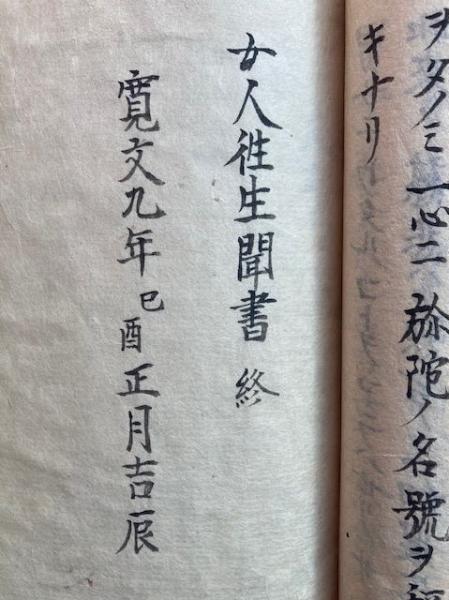 ヲタノミ一心ニ弥陀ノ名號ヲ
キナリ
女人徃生聞書 終
寛文九年己酉正月吉辰